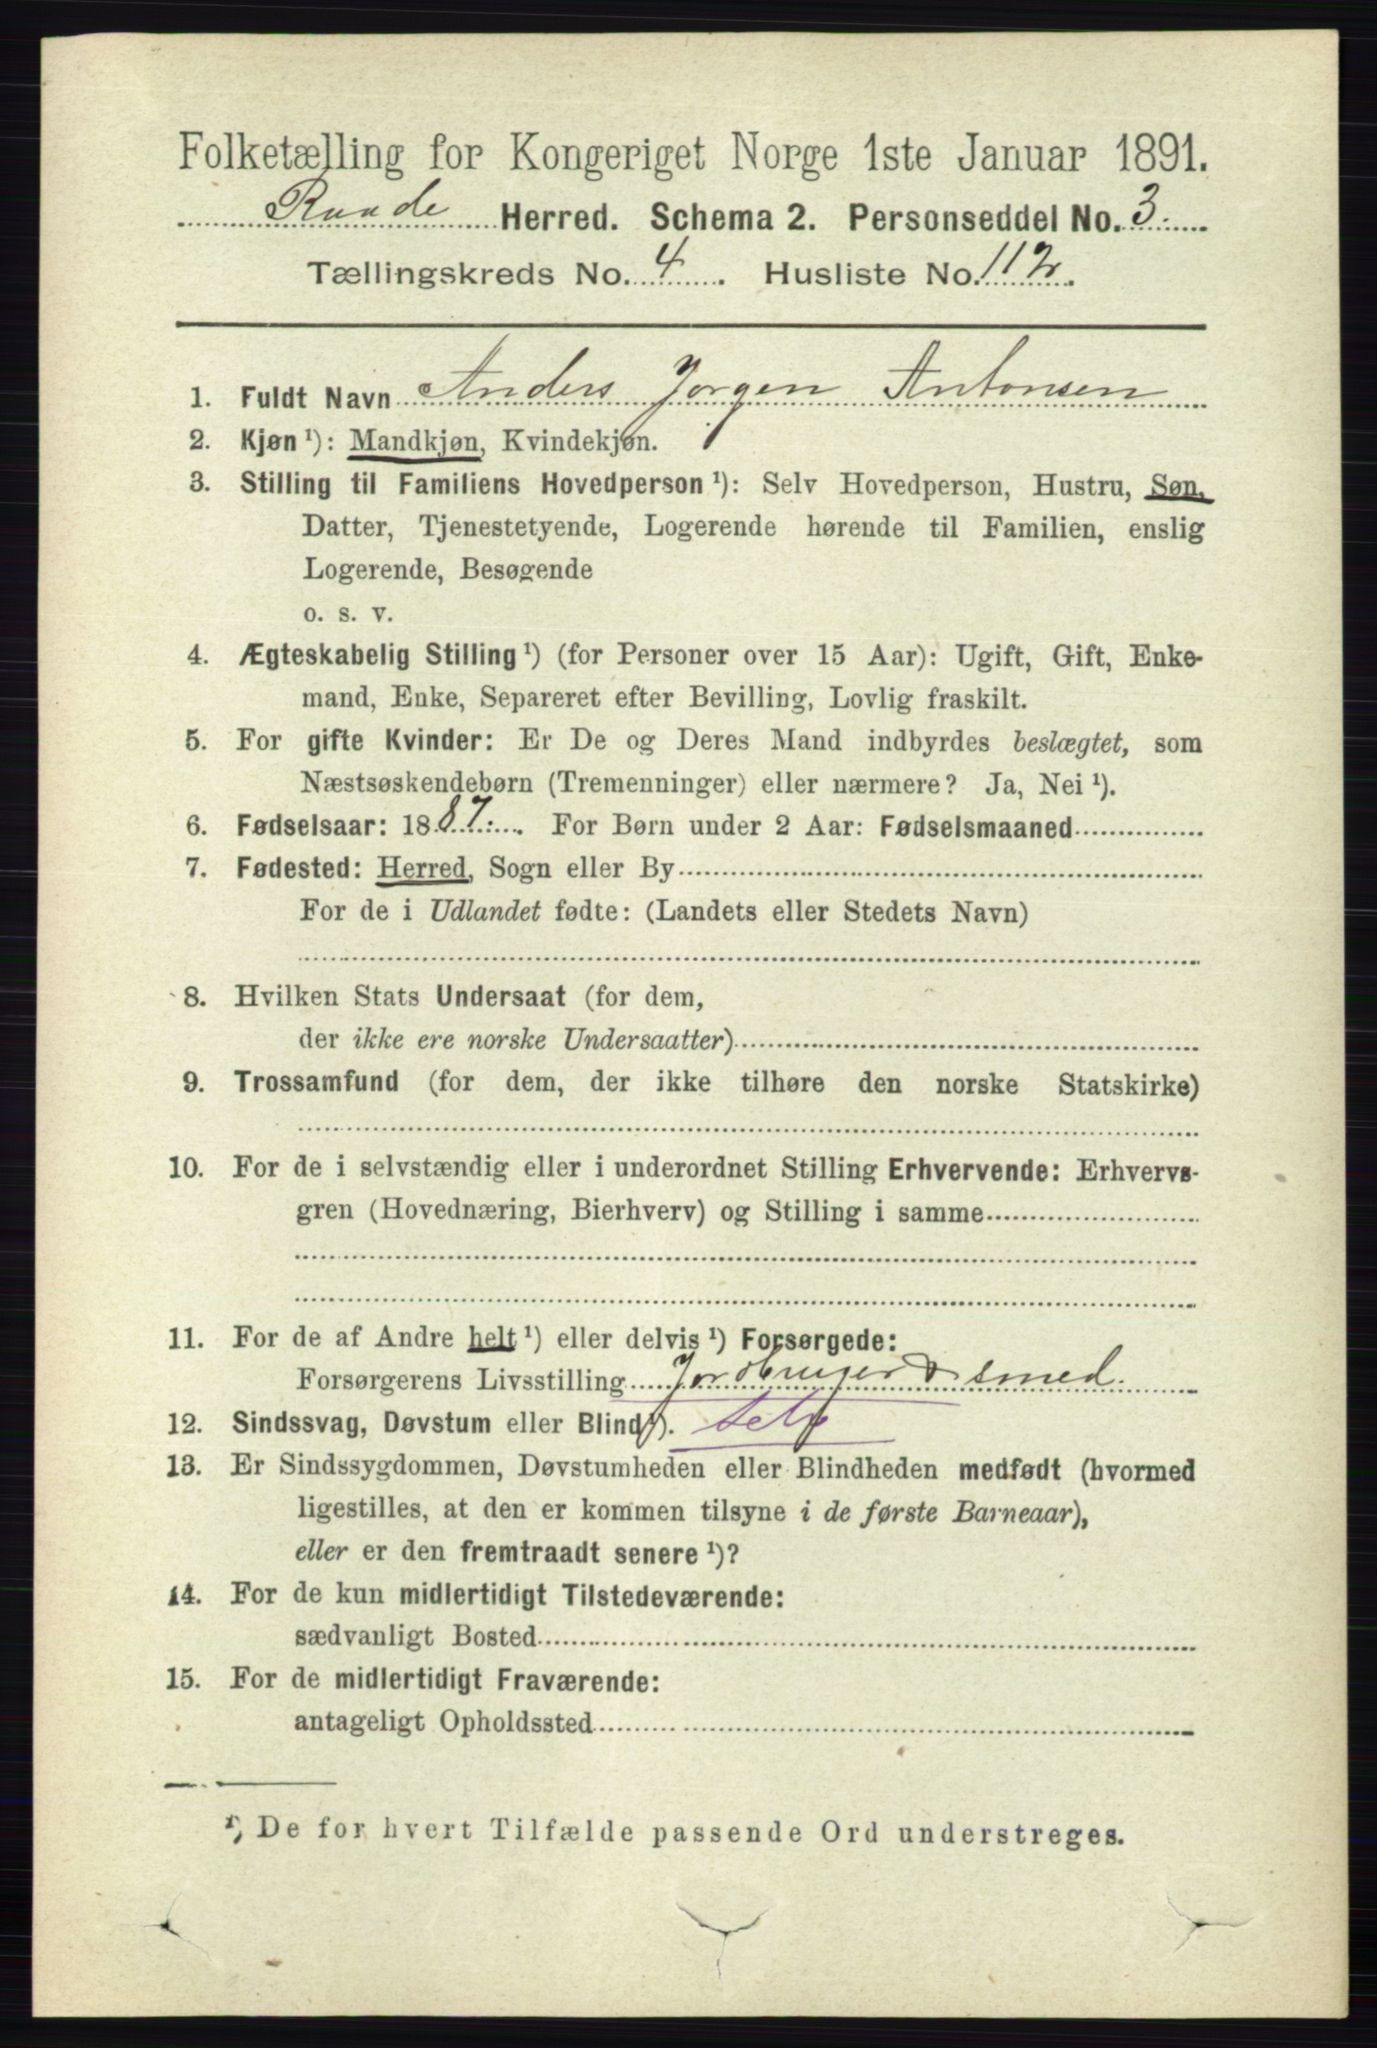 Folketælling for Kongeriget Norge 1ste Januar 1891.
Raade Herred. Schema 2. Personseddel No. 3.
Tællingskreds No. 4. Husliste No. 112.
1. Fuldt Navn Anders Jørgen Antonsen
2. Kjøn ¹): Mandkjøn, Kvindekjøn.
3. Stilling til Familiens Hovedperson ¹): Selv Hovedperson, Hustru, Søn,
Datter, Tjenestetyende, Logerende hørende til Familien, enslig
Logerende, Besøgende
o. s. v.
4. Ægteskabelig Stilling ¹) (for Personer over 15 Aar): Ugift, Gift, Enke-
mand, Enke, Separeret efter Bevilling, Lovlig fraskilt.
5. For gifte Kvinder: Er De og Deres Mand indbyrdes beslægtet, som
Næstsøskendebørn (Tremenninger) eller nærmere? Ja, Nei ¹).
6. Fødselsaar: 1887. For Børn under 2 Aar: Fødselsmaaned
7. Fødested: Herred, Sogn eller By
For de i Udlandet fødte: (Landets eller Stedets Navn)
8. Hvilken Stats Undersaat (for dem,
der ikke ere norske Undersaatter)
9. Trossamfund (for dem, der ikke tilhøre den norske Statskirke)
10. For de i selvstændig eller i underordnet Stilling Erhvervende: Erhvervs-
gren (Hovednæring, Bierhverv) og Stilling i samme
11. For de af Andre helt ¹) eller delvis ¹) Forsørgede:
Forsørgerens Livsstilling Jordbruger & smed.
12. Sindssvag, Døvstum eller Blind ¹). selv
13. Er Sindssygdommen, Døvstumheden eller Blindheden medfødt (hvormed
ligestilles, at den er kommen tilsyne i de første Barneaar),
eller er den fremtraadt senere ¹)?
14. For de kun midlertidigt Tilstedeværende:
sædvanligt Bosted
15. For de midlertidigt Fraværende:
antageligt Opholdssted
¹) De for hvert Tilfælde passende Ord understreges.